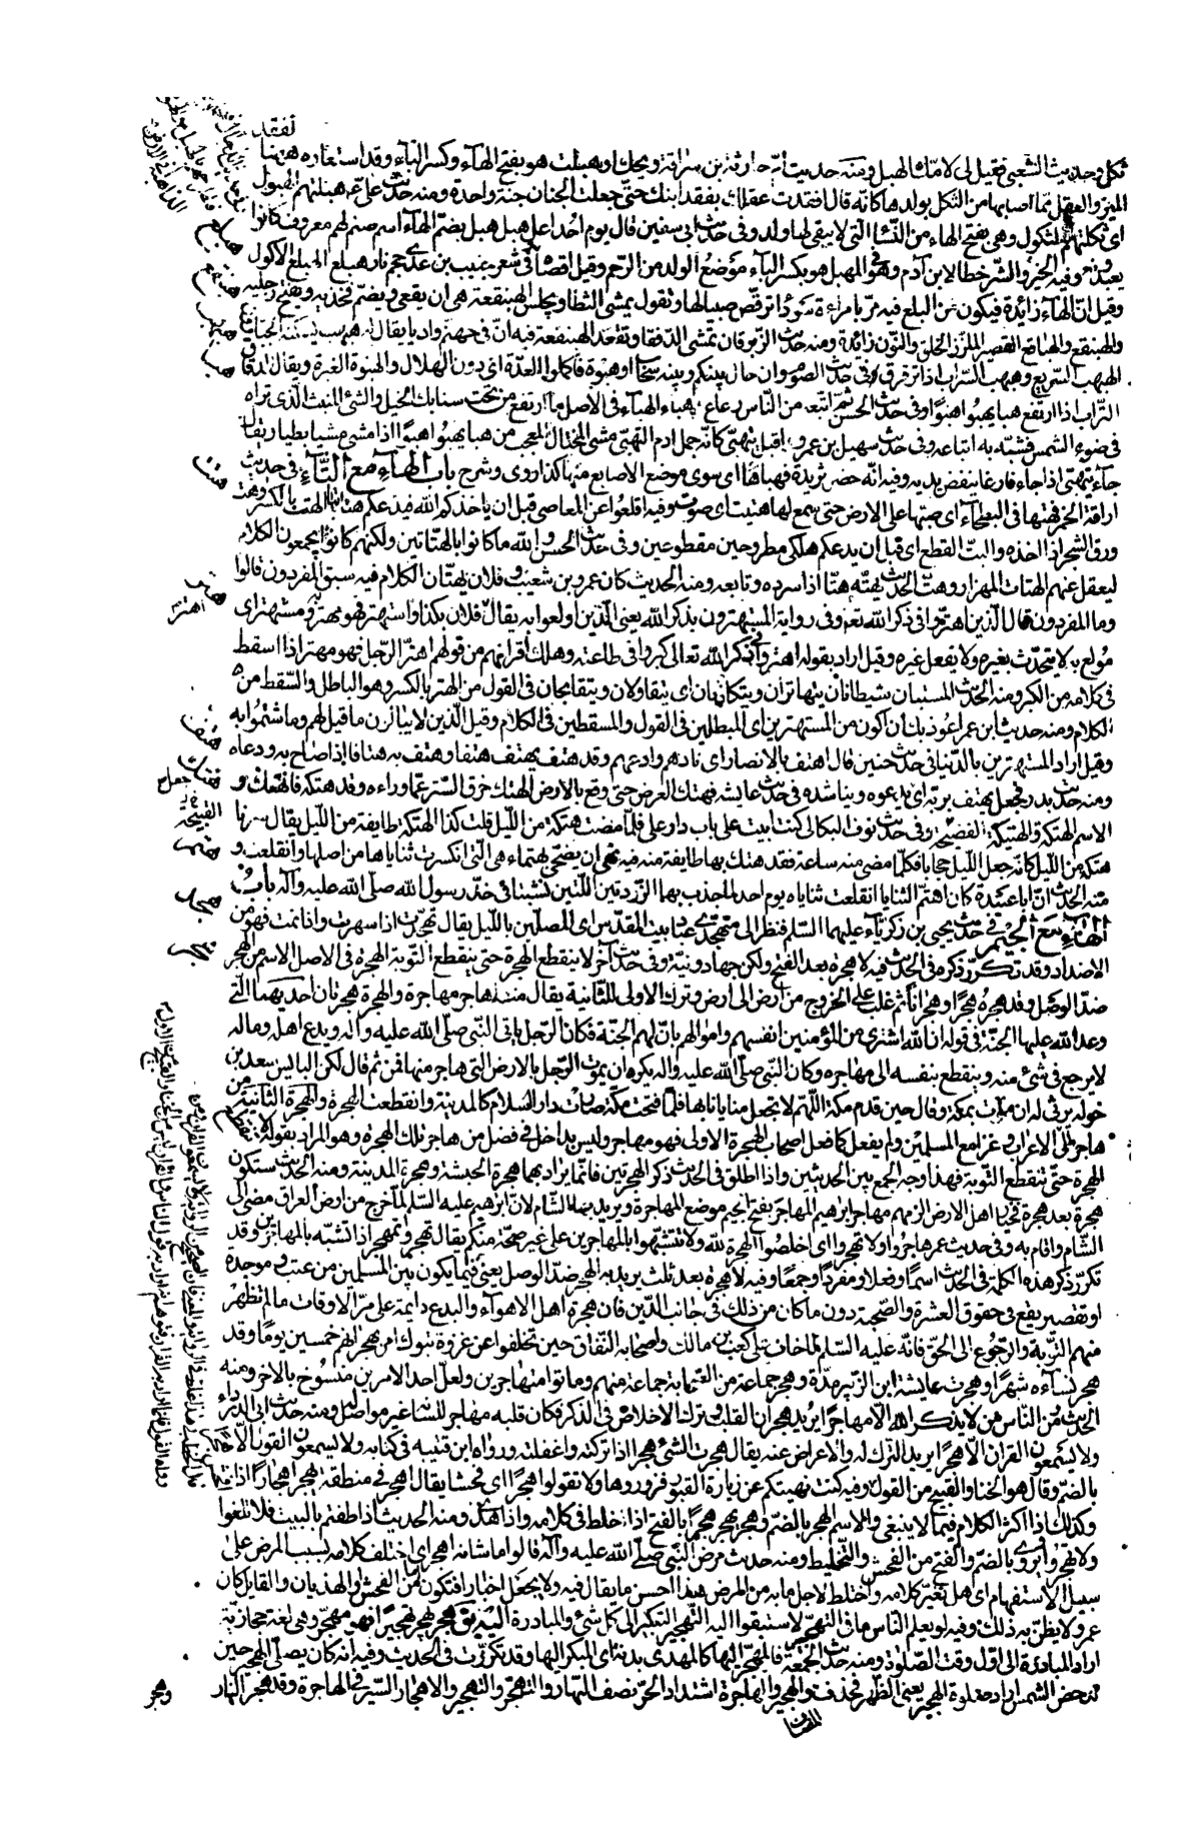 ثكل وحديث الشعبي فقيل لي لامك الهبل ومنه حديث أم حارثة بن سراقة ويحك اوهبلت هو بفتح الهاء وكسر الباء وقد استعاره ههنا لفقد
الميز والعقل مما اصابها من الثكل بولدها كانه قال افقدت عقلك بفقد ابنك حتى جعلت الجنان جنة واحدة ومنه حديث علي هبلتهم الهبول
اي ثكلتهم الثكول وهي بفتح الهاء من النساء التي لا يبقى لها ولد وفي حديث ابي سفين قال يوم احد اعل هبل هبل بضم الهاء اسم صنم لهم معروف كانوا
يعبدونه وفيه الخير والشر خطا لابن آدم وهو في المهبل هو بكسر الباء موضع الولد من الرحم وقيل اقصاه في شعر خبيب بن عدي جحم نار هبلع الهبلع الاكول
وقيل ان الهاء زائدة فيكون من البلع فيه مر بامراة سوداء ترقص صبيا لها وتقول يمشي الثطا ويجلس الهبنقعة هي ان يقعي ويضم فخذيه ويفتح رجليه
والهبنقع والهباقع القصير الملزز الخلق والنون زائدة ومنه حديث الزبرقان تمشي الدفقا وتقعد الهبنقعة فيه ان في جهنم واديا يقال له هبهب يسكنه الجبارون
الهبهب السريع وهبهب السراب اذا ترقرق وفي حديث الصوم وان حال بينكم وبينه سحاب اوهبوة فاكملوا العدة اي دون الهلال والهبوة الغبرة ويقال لدقاق
التراب اذا ارتفع هبا يهبوا هبوا وفي حديث الحسن ثم اتبعه من الناس رعاع هباء الهباء في الاصل ما ارتفع من تحت سنابك الخيل والشئ المنبث الذي تراه
في ضوء الشمس فشبه به اتباعه وفي حديث سهيل بن عمرو اقبل يتهبى كانه جمل ادم التهبي مشي المختال المعجب من هبا يهبوا هبوا اذا مشى مشيا بطيا يقال
جاء يتهبى اذا جاء فارغا ينفض يديه وفيه انه حضر ثريدة فهباها اي سوى موضع الاصابع منها كذا روى وشرح باب الهاء مع التاء في حديث
اراقة الخمر فهتها في البطحاء اي صبها على الارض حتى سمع لها هتيت اي صوت وفيه اقلعوا عن المعاصي قبل ان ياخذكم الله فيدعكم هتا بتا الهت الكسر وهت
ورق الشجر اذا اخذه والبت القطع اي قبل ان يدعكم هلكى مطروحين مقطوعين وفي حديث الحسن والله ما كانوا بالهتاتين ولكنهم كانوا يجمعون الكلام
ليعقل عنهم الهتات المهزار وهت الحديث يهته هتا اذا سرده وتابعه ومنه الحديث كان عمرو بن شعيب وفلان يهتان الكلام فيه سبق المفردون قالوا
وما المفردون قال الذين اهتروا في ذكر الله تعالى وفي رواية المستهترون بذكر الله يعني الذين اولعوا به يقال فلان بكذا واستهتر فهو مهتر به ومستهتر اي
مولع به لا يتحدث بغيره ولا يفعل غيره وقيل اراد بقوله اهتروا في ذكر الله تعالى كبروا في طاعته وهلك اقرانهم من قولهم اهتر الرجل فهو مهتر اذا اسقط
في كلامه من الكبر ومنه الحديث المستبان شيطانان يتهاتران ويتكاذبان اي يتقاولان ويتقابحان في القول من الهتر بالكسر وهو الباطل والسقط من
الكلام ومنه حديث ابن عمر اعوذ بك ان اكون من المستهترين اي المبطلين في القول والمسقطين في الكلام وقيل الذين لا يبالون ما قيل لهم وما شتموا به
وقيل اراد المستهترين بالدنيا في حديث حنين قال اهتف بالانصار اي نادهم وادعهم وقد هتف يهتف هتفا وهتف به هتافا اذا صاح به ودعاه
ومنه حديث بدر فجعل يهتف بربه اي يدعوه ويناشده في حديث عايشه فهتك العرض حتى وقع بالارض الهتك خرق الستر عما وراءه وقد هتكه فانهتك و
الاسم الهتكة والهتيكة الفضيحة وفي حديث نوف البكالي كنت ابيت على باب دار علي فلما مضت هتكة من الليل قلت كذا الهتكة طايفة من الليل يقال سرنا
هتكة من الليل كانه جعل الليل حجابا فكلما مضى منه ساعة فقد هتك بها طايفة منه فيه نهى ان يضحى بهتماء هي التي انكسرت ثناياها من اصلها وانقلعت و
منه الحديث ان ابا عبيدة كان اهتم الثنايا انقلعت ثناياه يوم احد لما جذب بها الزردتين اللتين نشبتا في خد رسول الله صلى الله عليه وآله باب
الهاء مع الجيم في حديث يحيى بن زكرياء عليهما السلم فنظر الى متهجدي عباد بيت المقدس اي المصلين بالليل يقال تهجدت اذا سهرت واذا نمت فهو من
الاضداد وقد تكرر ذكره في الحديث فيه لا هجرة بعد الفتح ولكن جهاد ونية وفي حديث آخر لا ينقطع الهجرة حتى ينقطع التوبة الهجرة في الاصل الاسم من الهجر
ضد الوصل وقد هجره هجرا وهجرانا ثم غلب على الخروج من ارض الى ارض وترك الاولى للثانية يقال منه هاجر مهاجرة والهجرة هجرتان احديهما التي
وعد الله عليها الجنة في قوله ان الله اشترى من المؤمنين انفسهم واموالهم بان لهم الجنة فكان الرجل ياتي النبي صلى الله عليه وآله ويدع اهله وماله
لا يرجع في شئ منه وينقطع بنفسه الى مهاجره وكان النبي صلى الله عليه وآله يكره ان يموت الرجل بالارض التي هاجر منها فمن ثم قال لكن البايس سعد بن
خوله يرثي له ان مات بمكة وقال حين قدم مكة اللهم لا تجعل منايانا بها فلما فتحت مكة صارت دار السلام كالمدينة وانقطعت الهجرة والهجرة الثانية من
هاجر الى الاعراب وغزا مع المسلمين ولم يفعل كما فعل اصحاب الهجرة الاولى فهو مهاجر وليس بداخل في فضل من هاجر تلك الهجرة وهو المراد بقوله لا تنقطع
الهجرة حتى تنقطع التوبة فهذا وجه الجمع بين الحديثين واذا اطلق في الحديث ذكر الهجرتين فانما يراد بهما هجرة الحبشة وهجرة المدينة ومنه الحديث ستكون
هجرة بعد هجرة فخيار اهل الارض الزمهم مهاجر ابرهيم المهاجر بفتح الجيم موضع المهاجرة ويريد به الشام لان ابرهيم عليه السلم لما خرج من ارض العراق مضى الى
الشام واقام به وفي حديث عمر هاجروا ولا تهجروا اي اخلصوا الهجرة لله ولا تتشبهوا بالمهاجرين على غير صحة منكم يقال تهجر وتمهجر اذا تشبه بالمهاجرين وقد
تكرر ذكر هذه الكلمة في الحديث اسما وفعلا ومفردا وجمعا وفيه لا هجرة بعد ثلث يريد به الهجر ضد الوصل يعني فيما يكون بين المسلمين من عتب وموجدة
او تقصير يقع في حقوق العشرة والصحبة دون ما كان من ذلك في جانب الدين فان هجرة اهل الاهواء والبدع دايمة على مر الاوقات ما لم تظهر
منهم التوبة والرجوع الى الحق فانه عليه السلم لما خاف على كعب بن مالك واصحابه النفاق حين تخلفوا عن غزوة تبوك امر بهجرانهم خمسين يوما وقد
هجر نساءه شهرا وهجرت عايشة ابن الزبير مدة وهجر جماعة من الصحابة جماعة منهم وماتوا متهاجرين ولعل احد الامرين منسوخ بالاخر ومنه
الحديث من الناس من لا يذكر الله الا مهاجرا يريد هجران القلب وترك الاخلاص في الذكر فكان قلبه مهاجر للسانه غير مواصل له ومنه حديث ابي الدرداء
ولا يسمعون القران الا هجرا يريد الترك له والاعراض عنه يقال هجرت الشئ هجرا اذا تركته واغفلته ورواه ابن قتيبه في كتابه ولا يسمعون القول الا هجرا
بالضم وقال هو الخنا والقبيح من القول وفيه كنت نهيتكم عن زيارة القبور فزوروها ولا تقولوا هجرا اي فحشا يقال اهجر في منطقه يهجر اهجارا اذا افحش
وكذلك اذا اكثر الكلام فيما لا ينبغي والاسم الهجر بالضم وهجر يهجر هجرا بالفتح اذا خلط في كلامه واذا هذى ومنه الحديث اذا طفتم بالبيت فلا تلغوا
ولا تهجروا يروى بالضم والفتح من الفحش والتخليط ومنه حديث مرض النبي صلى الله عليه وآله قالوا ما شانه اهجر اي اختلف كلامه بسبب المرض على
سبيل الاستفهام اي هل تغير كلامه واختلط لاجل ما به من المرض هذا احسن ما يقال فيه ولا يجعل اخبارا فتكون من الفحش والهذيان والقايل كان
عمر ولا يظن به ذلك وفيه لو يعلم الناس ما في التهجير لاستبقوا اليه التهجير التبكير الى كل شئ والمبادرة اليه يق هجر يهجر تهجيرا فهو مهجر وهي لغة حجازية
اراد المبادرة الى اول وقت الصلوة ومنه حديث الجمعة فالمهجر اليها كالمهدي بدنة اي المبكر اليها وقد تكررت في الحديث وفيه انه كان يصلي الهجير حين
تدحض الشمس اراد صلوة الهجير يعني الظهر فحذف المضاف والهجير والهاجرة اشتداد الحر نصف النهار والتهجر والتهجير والاهجار السير في الهاجرة وقد هجر النهار
وهجر
هبلع
هبنقع
هبهب
هبا
هتت
هتر
اهتر
هتف
هتك
هتم
هجد
هجر